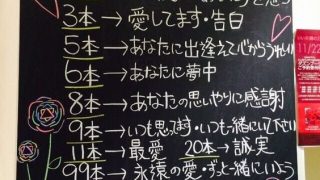 3本→愛してます・告白
5本→あなたに出逢えて心からうれしい
6本→あなたに夢中
8本→あなたの思いやりに感謝
9本→いつも想ってます・いつも一緒にいて下さい
11本→最愛 20本→誠実
99本→永遠の愛・ずっと一緒にいよう
11/22